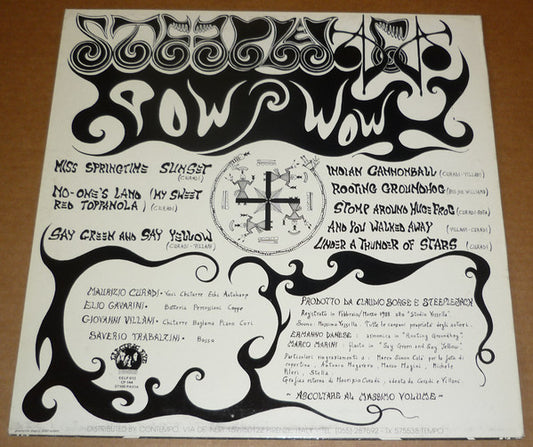 STEEPLEJACK
POW WOW
MISS SPRINGTIME SUNSET
(CURADI)
NO-ONE'S LAND (MY SWEET
RED TOPPANOLA) (CURADI)
SAY GREEN AND SAY YELLOW
(CURADI - VILLANI)
INDIAN CANNONBALL (CURADI - VILLANI)
ROOTING GROUNDHOG (BIG JOE WILLIAMS)
STOMP AROUND HUGE FROG
AND YOU WALKED AWAY (VILLANI - CURADI)
UNDER A THUNDER OF STARS (CURADI)
MAURIZIO CURADI - Voci Chitarre Echi Autoharp
ELIO GAVARINI - Batteria Percussioni Cappe
GIOVANNI VILLANI - Chitarre Baglama Piano Cori
SAVERIO TRABALZINI - Basso
PRODOTTO DA CLAUDIO SORGE E STEEPLEJACK
Registrato in Febbraio/Marzo 1988 allo "Studio Vessella".
Suono: Massimo Vessella. Tutte le canzoni proprietà degli autori.
ERMANNO DANESE: armonica in "Rooting Groundhog"
MARCO MARINI: flauto in "Say Green and Say Yellow"
Particolari ringraziamenti a: Marco Simon Calò per la foto di
copertina, Antonio Nogarero, Marco Magini, Michele
Stella.
Grafica interna di Maurizio Curadi, ideata da Curadi e Villani
- ASCOLTARE AL MASSIMO VOLUME -
DISTRIBUTED BY CONTEMPO, VIA DE' NERI